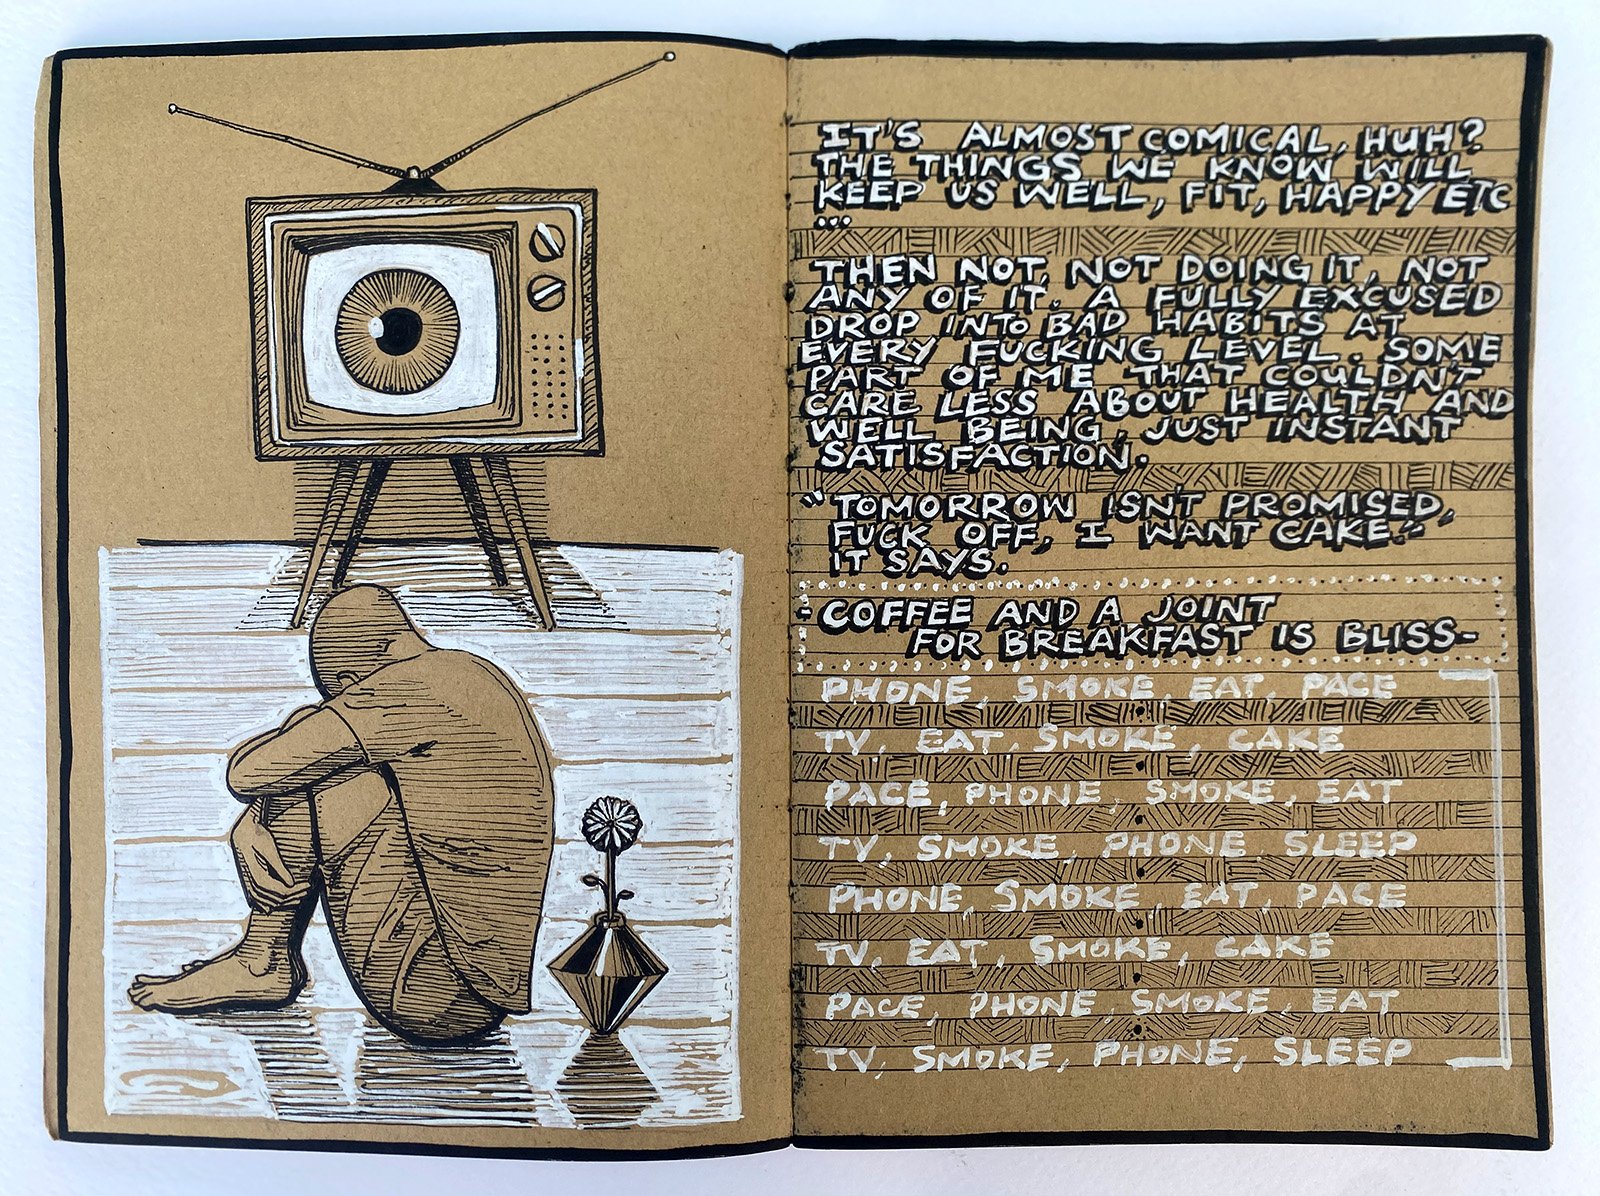 IT'S ALMOST COMICAL, HUH?
THE THINGS WE KNOW WILL
KEEP US WELL, FIT, HAPPY ETC
...
THEN NOT, NOT DOING IT, NOT
ANY OF IT. A FULLY EXCUSED
DROP INTO BAD HABITS AT
EVERY FUCKING LEVEL. SOME
PART OF ME THAT COULDN'T
CARE LESS ABOUT HEALTH AND
WELL BEING, JUST INSTANT
SATISFACTION.
"TOMORROW ISN'T PROMISED,
FUCK OFF, I WANT CAKE."
IT SAYS.
COFFEE AND A JOINT
FOR BREAKFAST IS BLISS-
PHONE, SMOKE, EAT, PACE
TV, EAT, SMOKE, CAKE
PACE, PHONE, SMOKE, EAT
TV, SMOKE, PHONE, SLEEP
PHONE, SMOKE, EAT, PACE
TV, EAT, SMOKE, CAKE
PACE, PHONE, SMOKE, EAT
TV, SMOKE, PHONE, SLEEP